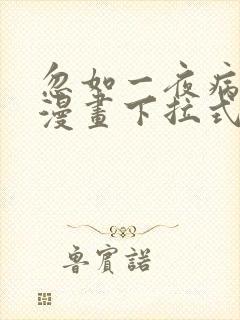 忽如一夜病
漫畫下拉式
魯賓諾